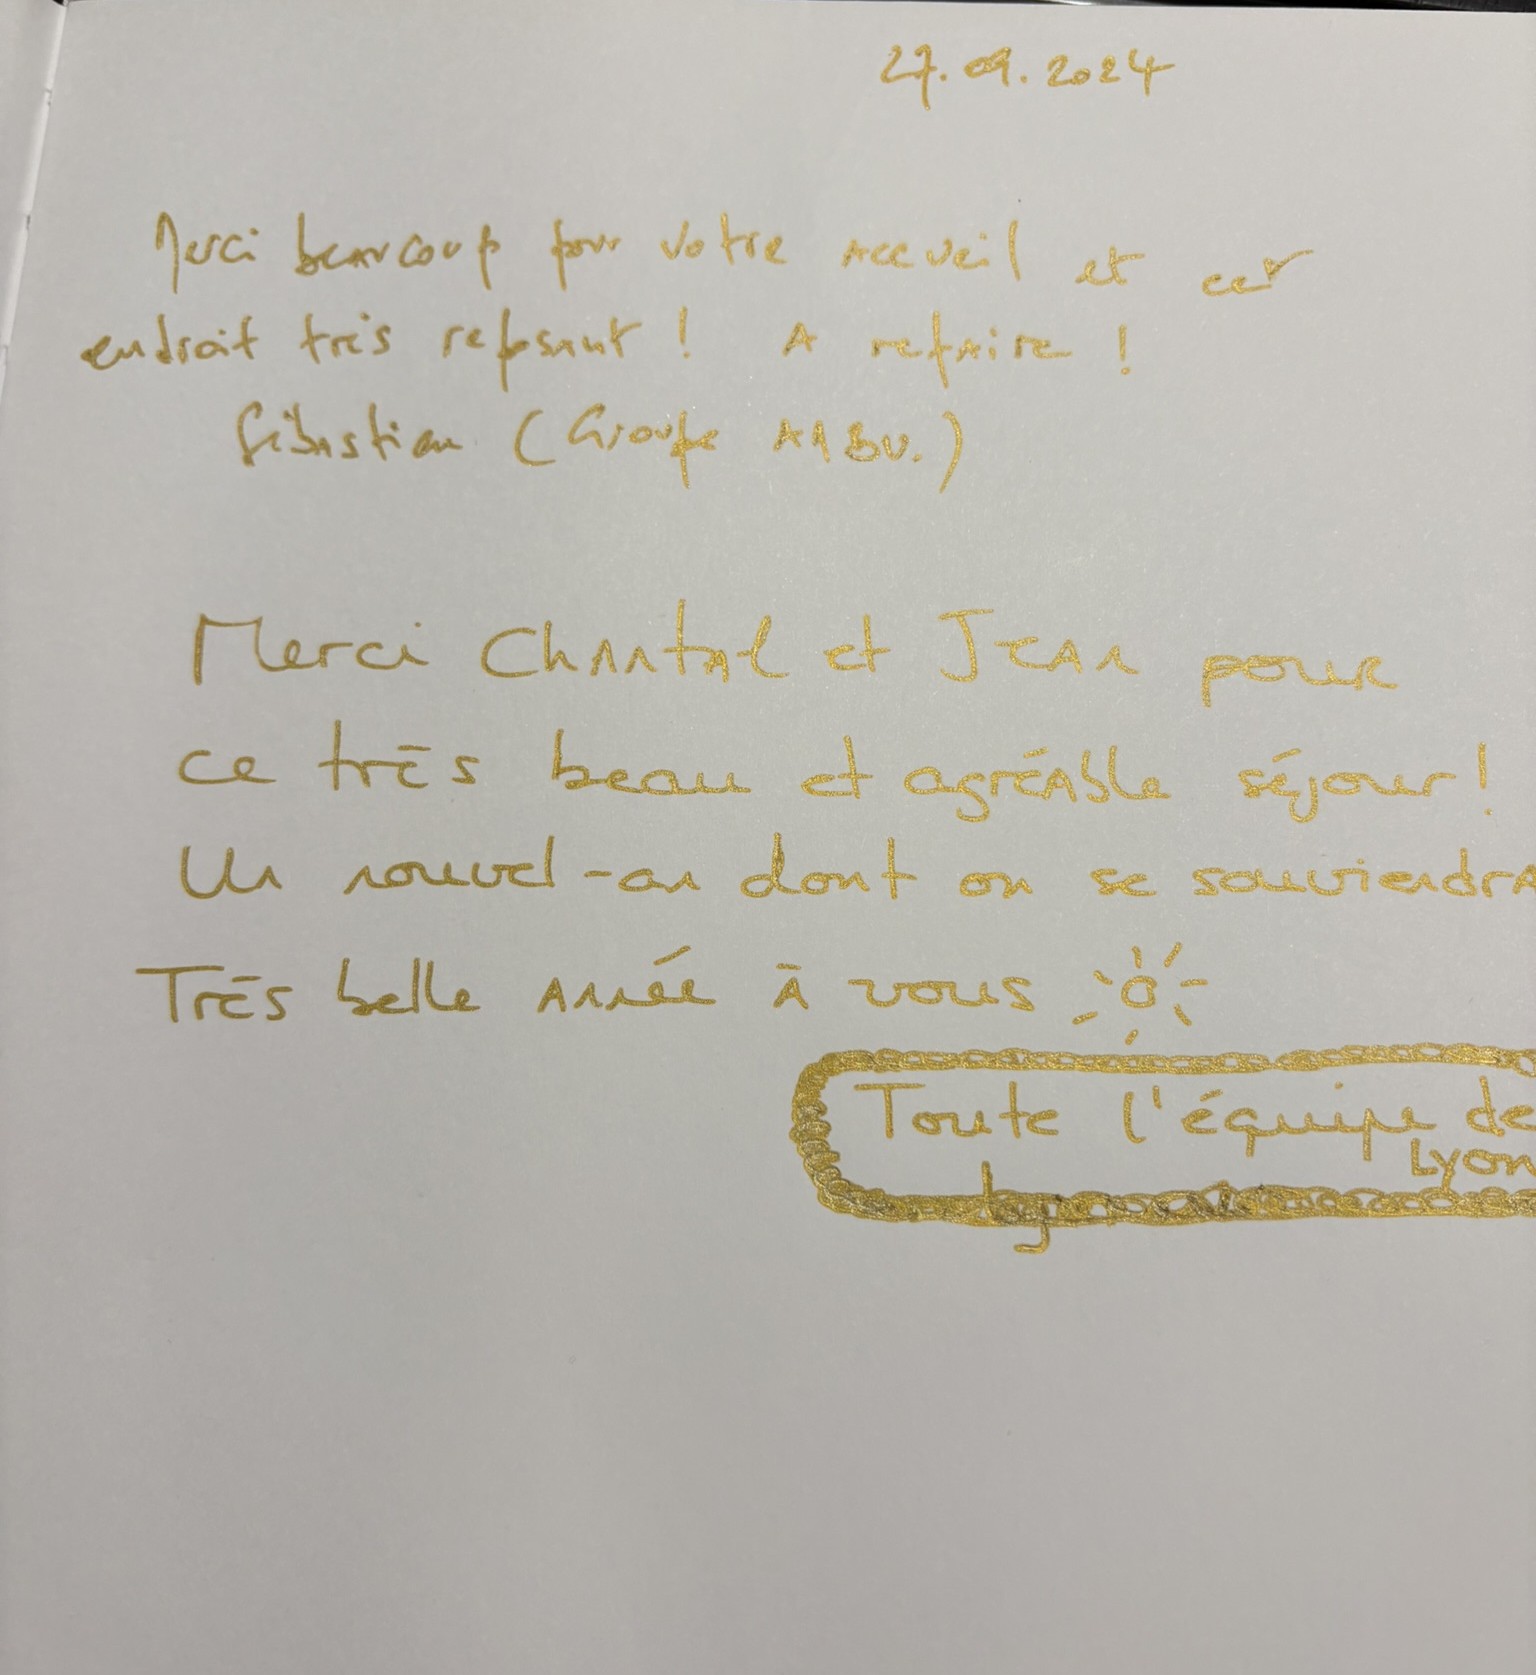 27.09.2024
Merci beaucoup pour votre accueil et cet
endroit très reposant ! A refaire !
Sébastien (Groupe
Merci Chantal et Jean pour
ce très beau et agréable séjour !
Un nouvel-an dont on se souviendra
Très belle année à vous
Toute l'équipe de
Lyon